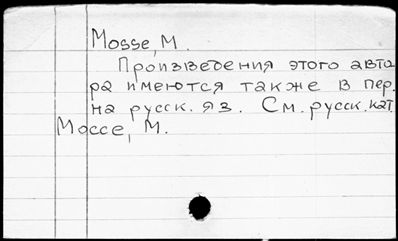 Mosse, M.
Произведения этого авто
ра имеются также в пер.
на русск. яз. См. русск. кат.
Моссе, М.